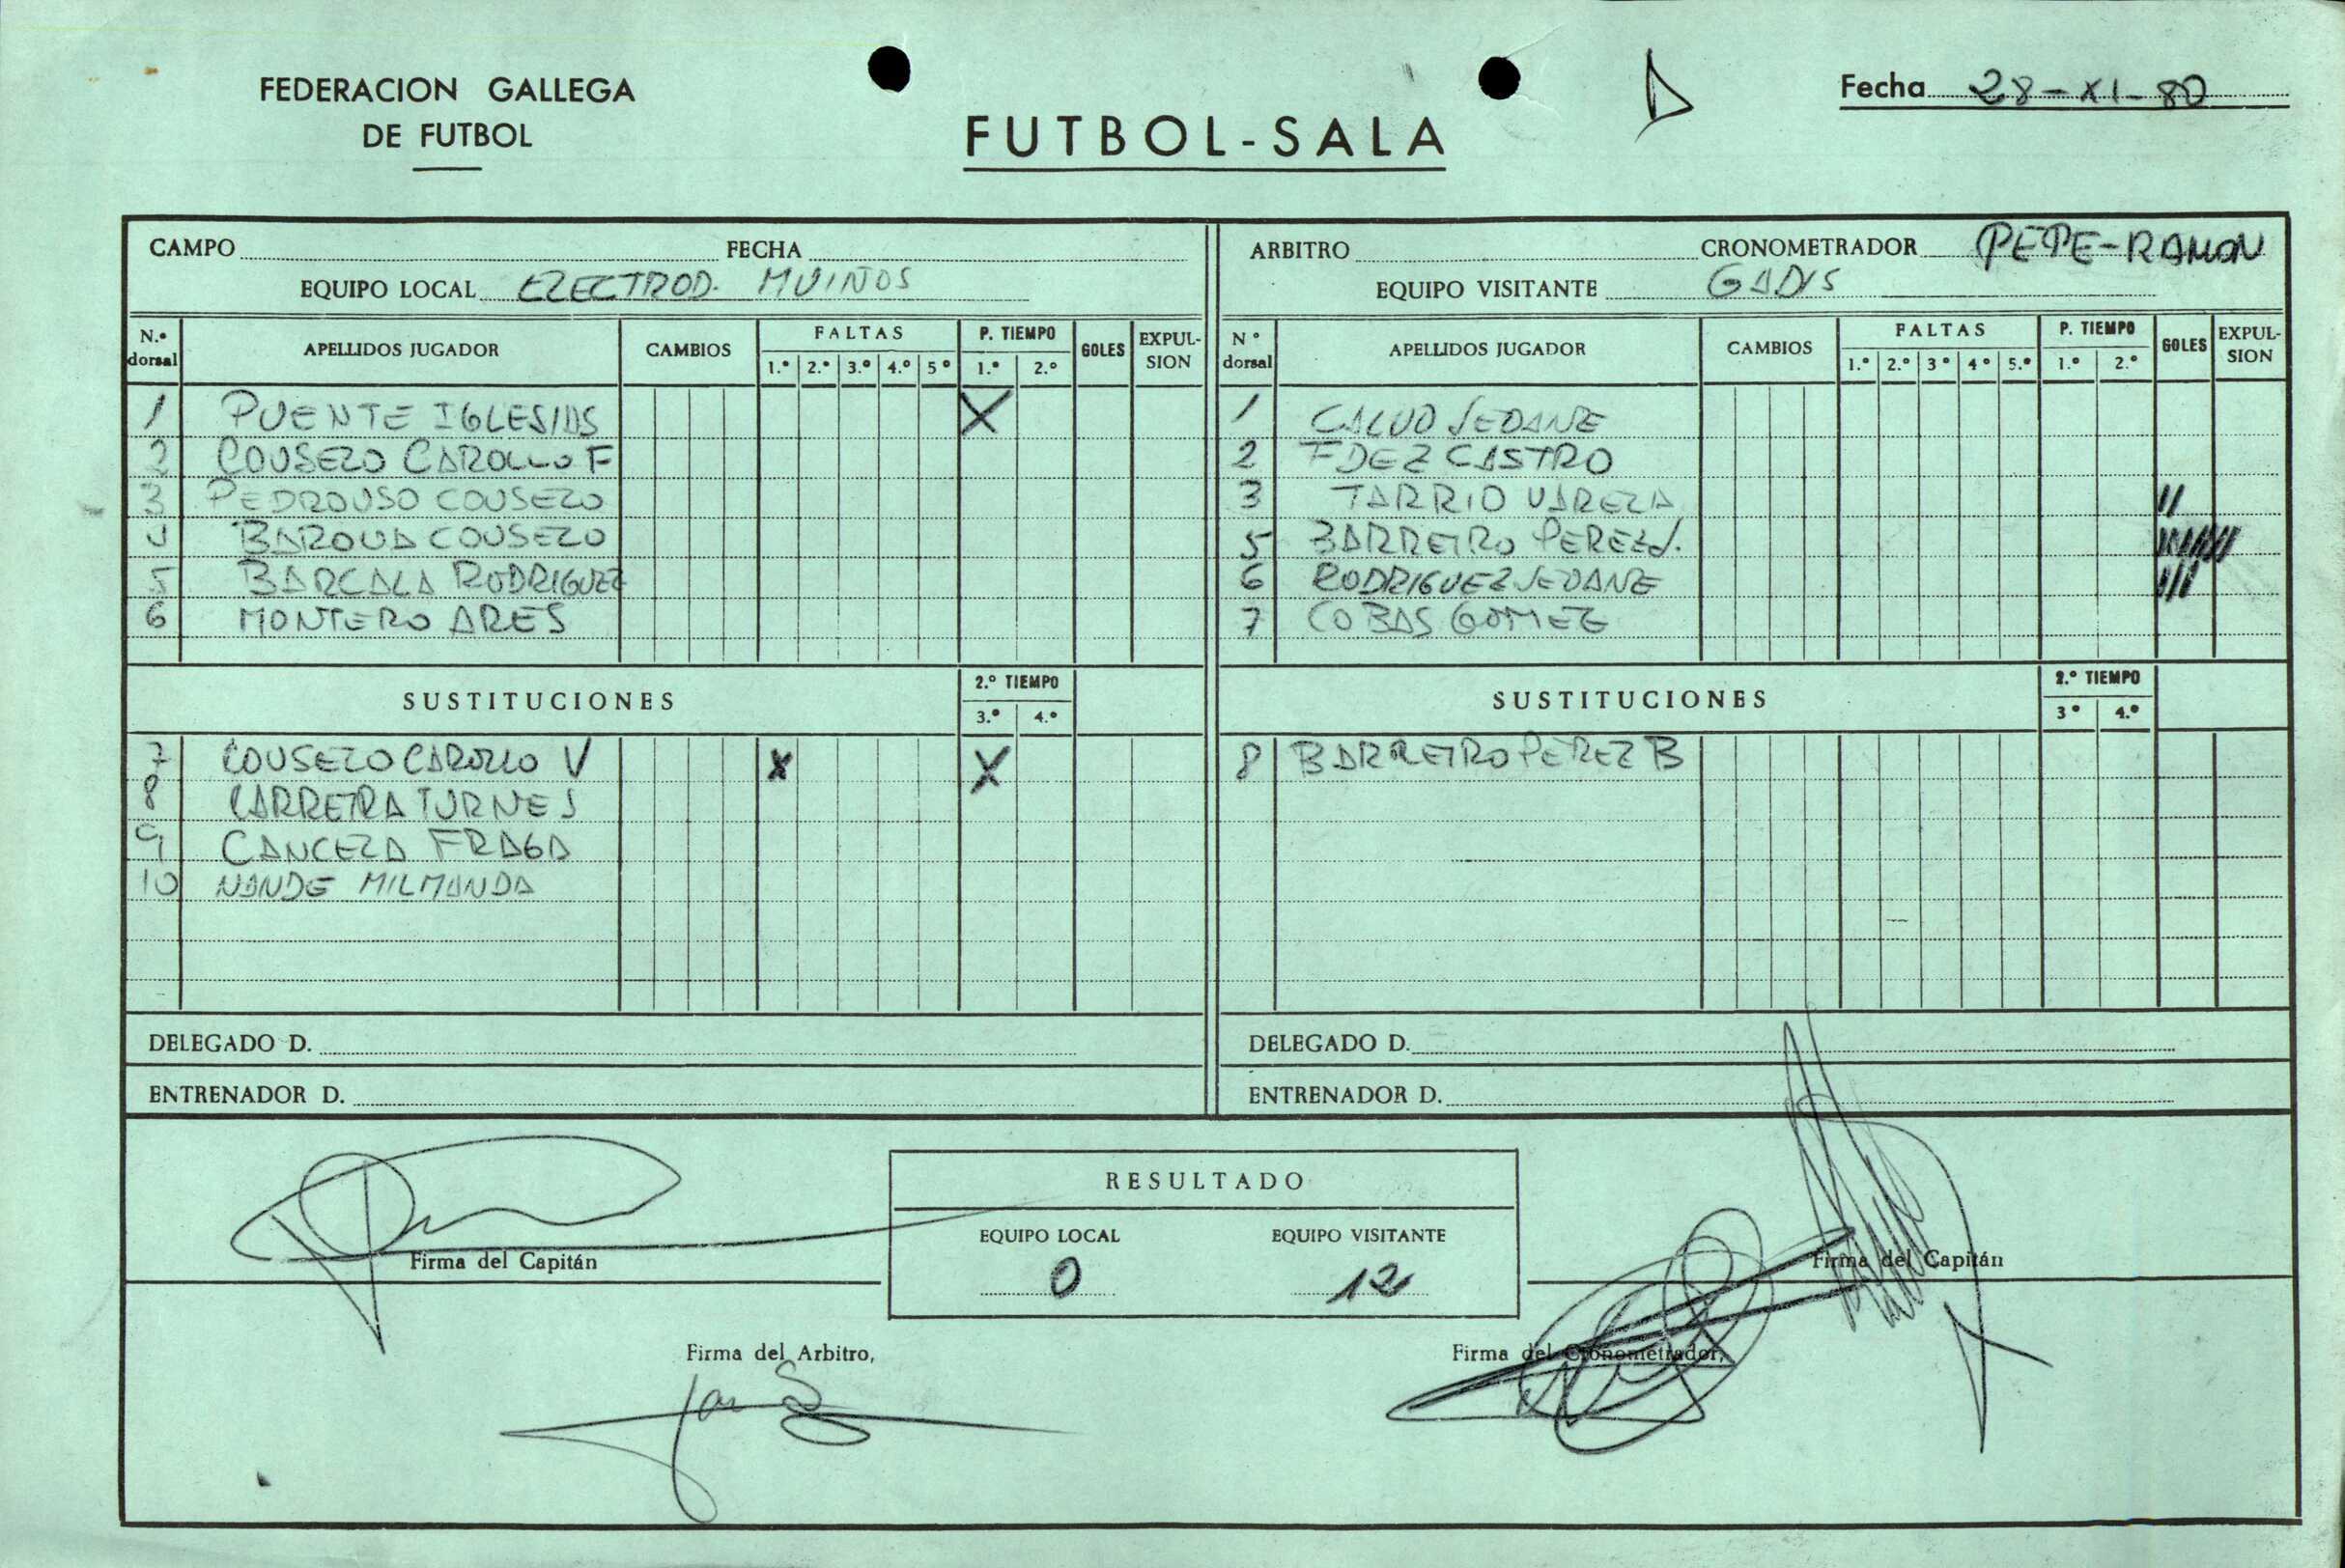 FEDERACION GALLEGA
DE FUTBOL
FUTBOL-SALA
Fecha 28-XI-80
CAMPO FECHA
EQUIPO LOCAL ELECTROD. MUIÑOS
ARBITRO CRONOMETRADOR PEPE-RAMON
EQUIPO VISITANTE GADIS
N.º dorsal APELLIDOS JUGADOR CAMBIOS FALTAS 1.º 2.º 3.º 4.º 5º P. TIEMPO 1.º 2.º GOLES EXPULSION
1 PUENTE IGLESIAS X
2 COUSELO CAROLLO F
3 PEDROUSO COUSELO
4 BAROUA COUSELO
5 BARCALA RODRIGUEZ
6 MONTERO ARES
SUSTITUCIONES 2.º TIEMPO 3.º 4.º
7 COUSELO CAROLLO V X X
8 CARREIRA TURNES
9 CANCELA FRAGA
10 NANDE MILMANDA
DELEGADO D.
ENTRENADOR D.
Nº dorsal APELLIDOS JUGADOR CAMBIOS FALTAS 1.º 2.º 3º 4º 5.º P. TIEMPO 1.º 2.º GOLES EXPULSION
1 CALVO SEOANE
2 FDEZ CASTRO
3 TARRIO VARELA
5 BARREIRO PEREZ J.
6 RODRIGUEZ SEOANE
7 COBAS GOMEZ
SUSTITUCIONES 2.º TIEMPO 3º 4.º
8 BARREIRO PEREZ B
DELEGADO D.
ENTRENADOR D.
RESULTADO
EQUIPO LOCAL EQUIPO VISITANTE
0 12
Firma del Capitán
Firma del Capitán
Firma del Arbitro,
Firma del Cronometrador,